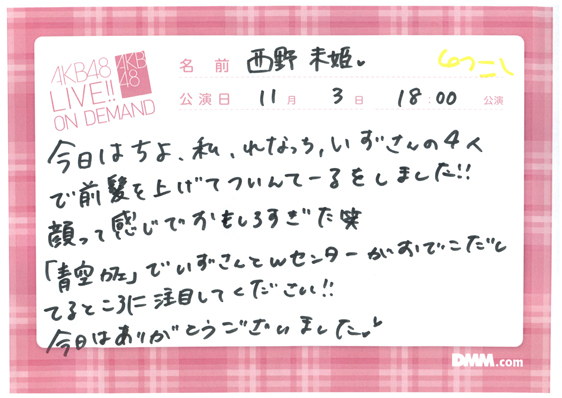 AKB48
LIVE!!
ON DEMAND
AKB
48
名前 西野 未姫
公演日 11月 3日 18:00 公演
今日はちよ、私、れなっち、いずさんの4人
で前髪を上げてついんてーるをしました!!
顔って感じでおもしろすぎた笑
「青空カフェ」でいずさんとWセンターがおでこだし
てるところに注目してください!!
今日はありがとうございました
DMM.com